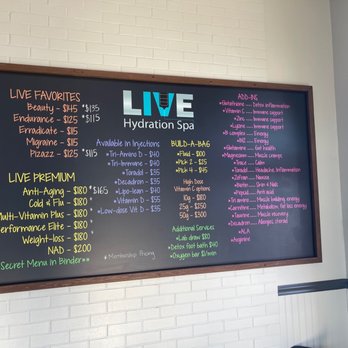 LIVE
Hydration Spa
LIVE FAVORITES
Beauty - $145 *$135
Endurance - $125 *$115
Eradicate - $115
Migraine - $115
Pizazz - $125 *$115
LIVE PREMIUM
Anti-Aging - $180 *$165
Cold & Flu - $180 *
Multi-Vitamin Plus - $180 *
Performance Elite - $180 *
Weight-loss - $180 *
NAD - $200
Secret Menu in Binder**
Available in Injections
Tri-Amino D - $40
Tri-Immune - $40
Toradol - $35
Decadron - $35
Lipo-lean - $40
Vitamin D - $35
Low-dose Vit D - $35
*Membership Pricing
BUILD-A-BAG
Fluid - $100
Pick 2 - $25
Pick 4 - $45
High Dose
Vitamin C options
10g - $80
25g - $250
50g - $300
Additional Services
*Lab draw $80
*Detox foot bath $40
*Oxygen bar $1/min
ADD-INS
*Glutathione ... Detox inflammation
*Vitamin C ... Immune support
*Zinc ... Immune support
*Lysine ... Immune support
*B complex ... Energy
*B12 ... Energy
*Glutamine ... Gut health
*Magnesium ... Muscle cramps
*Toradol ... Headache, Inflammation
*Zofran ... Nausea
*Biotin ... Skin & Nails
*Pepcid ... Anti acid
*Tri Amino ... Muscle building, energy
*Carnitine ... Metabolism, fat loss, energy
*Taurine ... Muscle recovery
*Decadron ... Allergies, steroid
*ALA